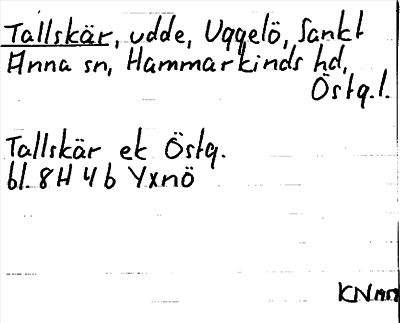 Tallskär, udde, Uggelö, Sankt
Anna sn, Hammarkinds hd,
Östg.l.
Tallskär ek Östg.
bl. 8H 4b Yxnö